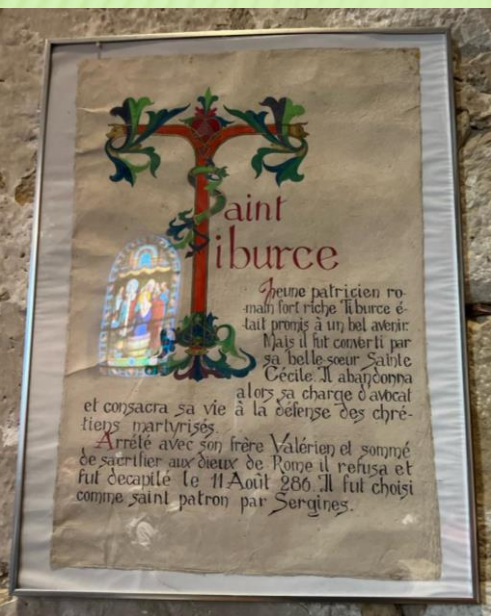 Saint
Tiburce
Jheune patricien ro-
-main fort riche Tiburce é-
tait promis à un bel avenir.
Mais il fut converti par
sa belle-soeur Sainte
Cécile. Il abandonna
alors sa charge d'avocat
et consacra sa vie à la défense des chré-
tiens martyrisés.
Arrété avec son frère Valérien et sommé
de sacrifier aux dieux de Rome il refusa et
fut décapité le 11 Août 286. Il fut choisi
comme saint patron par Sergines.